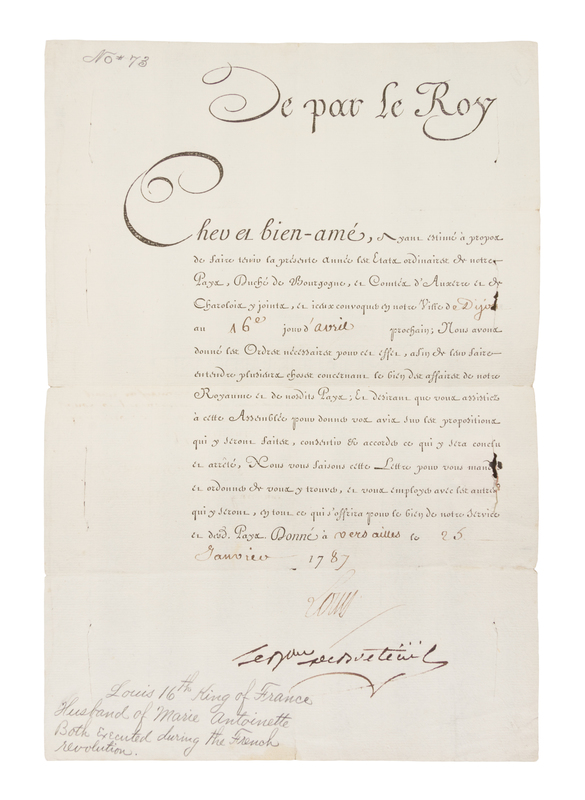 No. 73
De par le Roy
Cher et bien-amé, Ayant estimé à propos
de faire tenir la présente année les Etats ordinaires de notre
Pays, Duché de Bourgogne, et Comtés d'Auxerre et de
Charolois y joints, et iceux convoqués en notre Ville de Dijon
au 16e jour d'avril prochain; Nous avons
donné les Ordres nécessaires pour cet effet, afin de leur faire
entendre plusieurs choses concernant le bien des affaires de notre
Royaume et de nosdits Pays; Et désirant que vous assistiez
à cette Assemblée pour donner vos avis sur les propositions
qui y seront faites, consentir & accorder ce qui y sera conclu
et arrêté, Nous vous faisons cette Lettre pour vous mander
et ordonner de vous y trouver, et vous employer avec les autres
qui y seront, en tout ce qui s'offrira pour le bien de notre Service
et desd. Pays. Donné à Versailles le 25
Janvier 1787
Louis
Le Bon de Breteüil
Louis 16th King of France
Husband of Marie Antoinette
Both Executed during the French
revolution.